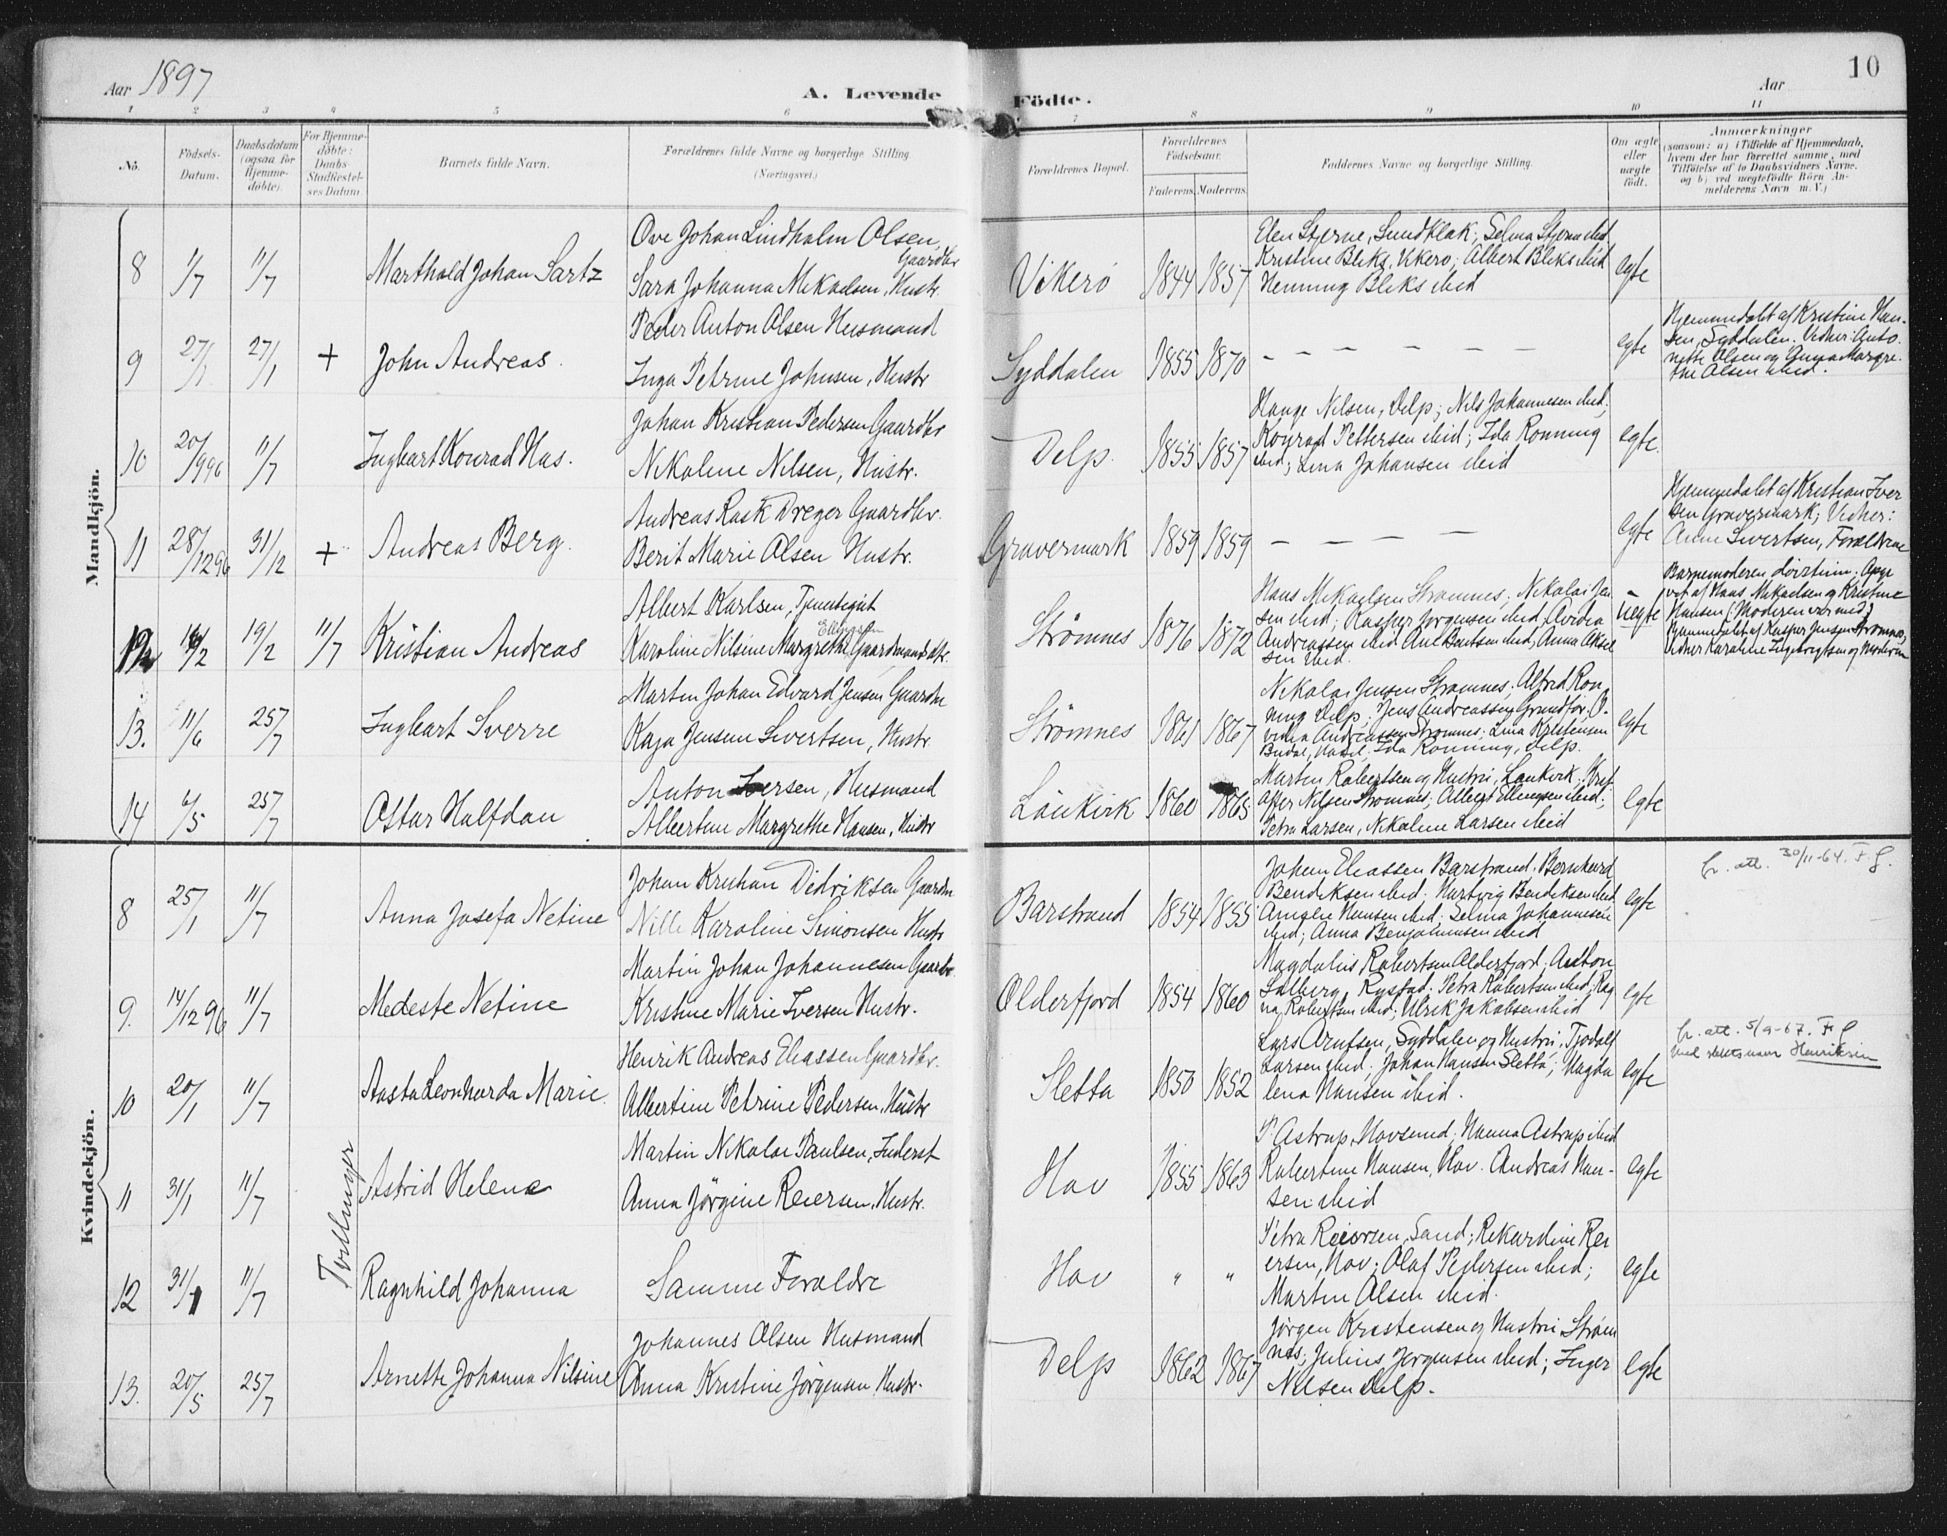 10
Aar 1897
A. Levende
Födte.
Aar
1 2 3 4 5 6 7 8 9 10 11
No.
Födsels-
Datum.
Daabsdatum
(ogsaa for
Hjemme-
döbte).
For Hjemme-
döbte:
Daabs-
Stadfæstel-
ses Datum.
Barnets fulde Navn.
Forældrenes fulde Navne og borgerlige Stilling
(Næringsvei.)
Forældrenes Bopæl.
Forældrenes
Födselsaar.
Faderens. Moderens.
Faddernes Navne og borgerlige Stilling.
Om ægte
eller
uægte
födt.
Anmærkninger
(saasom: a) i Tilfælde af Hjemmedaab,
hvem der har forrettet samme, med
Tilföielse af to Daabsvidners Navne.
og b) ved uægtefödte Börn An-
melderens Navn m. V.)
Mandkjön.
8 1/7 11/7 Marthold Johan Sartz
Ove Johan Lindholm Olsen,
Gaardbr
Sara Johanna Mikaelsen, Hustr.
Vikerö 1844 1857
Elen Stjerne, Sundklak; Selma Stjerne ibid
Kristine Bliks, Vikerö; Albert Bliks ibid
Henning Bliks ibid
egte
9 27/1 27/1 + John Andreas.
Peder Anton Olsen Husmand
Inga Petrine Johnsen, Hustr
Syddalen 1855 1870
— — — — — —
egte
Hjemmedøbt af Kristine Han-
sen, Syddalen. Vidner: Anto-
nette Olsen og Anna Margre-
the Olsen ibid.
10 20/9 96 11/7 Ingbart Konrad Has.
Johan Kristian Pedersen Gaardbr
Nikoline Nilsen, Hustr.
Delp. 1855 1857
Hauge Nilsen, Delp; Nils Johannesen ibid,
Konrad Pettersen ibid; Ida Ronning
ibid; Lina Johansen ibid
egte.
11 28/12 96 31/12 + Andreas Berg.
Andreas Rask Dreyer Gaardbr.
Berit Marie Olsen Hustr.
Gravermark 1859 1859
— — — —
egte
Hjemmedøbt af Kristian Iver
sen Gravermark; Vidner:
Anne Sivertsen, Forældrene
12 19/2 11/7 Kristian Andreas
Albert Karlsen, Tjenestegut
Ellingsen
Karoline Nilsine Margrethe Gaardmandsdtr.
Strömnes 1876 1872
Hans Mikaelsen Strømnes; Nikolai Jen
sen ibid; Kasper Jørgensen ibid,
Andreassen ibid Ane Bentsen ibid, Anna Aksel
sen ibid.
uegte
Barnemoderen
vet af Hans Mikaelsen og Kristine
Hansen (Moderen var med)
Hjemmedøbt af Kasper Jensen Strømnes,
Vidner Karoline Ingebrigtsen og Moderen
13. 11/6 25/7 Ingbart Sverre
Martin Johan Edvard Jensen Gaardbr
Kaja Jensine Sivertsen, Hustr
Strömnes 1861 1867
Nikolai Jensen Strømnes; Alfred Ron-
ning Delp; Jens Andreassen Grundfør, O-
Andreassen Strømnes; Lina Kristensen
Ida Ronning, Delp.
egte
14 6/5 25/7 Ottar Halfdan
Anton Iversen, Husmand
Albertine Margrethe Hansen, Hustr
Laukvik 1860 1865
Martin Robertsen og Hustru, Laukvik
Nilsen Strømnes; Albert Ellingsen ibid;
Petra Larsen, Nikoline Larsen ibid
egte
Kvindekjön.
8 25/1 11/7 Anna Josefa Netine
Johan Kristian Didriksen Gaardm
Nille Karoline Simonsen Hustr
Barstrand 1854 1855
Johan Eliassen Barstrand. Bernhard
Bendiksen ibid; Hartvig Bendiksen ibid,
Amalie Hansen ibid. Selma Johannesen
ibid; Anna Benjaminsen ibid
egte
br. att. 30/11-64. F.G.
9. 14/12 96 11/7 Medeste Netine
Martin Johan Johannesen Gaardbr
Kristine Marie Iversen Hustr.
Olderfjord 1854 1860
Magdalus Robertsen Olderfjord. Anton
Solberg, Rystad. Petra Robertsen ibid, Rag
na Robertsen ibid; Ulrik Jakobsen ibid
egte
10 20/1 11/7 Aasta Leonharda Marie
Henrik Andreas Eliassen Gaardbr.
Albertine Petrine Pedersen, Hustr
Sletta 1850 1852
Lars Arntsen, Syddalen og Hustru; Tjodolf
Larsen ibid; Johan Hansen Sletta; Magda
lena Hansen ibid.
egte
br. att. 5/9-67. F.G
med slektsnavn Henriksen
Tvillinger
11 31/1 11/7 Astrid Helene
Martin Nikolai Paulsen, Inderst
Anna Jørgine Reiersen, Hustr.
Hov 1855 1863
P. Astrup, Hovsund; Hanna Astrup ibid
Robertine Hansen, Hov. Andreas Han-
sen ibid
egte
12 31/1 11/7 Ragnhild Johanna
Samme Forældre
Hov " "
Petra Reiersen, Sand; Rikardine Rei
ersen, Hov; Olaf Pedersen ibid;
Martin Olsen ibid.
egte
13. 20/5 25/7 Arnette Johanna Nilsine
Johannes Olsen Husmand
Anna Kristine Jørgensen Hustr.
Delp 1862 1867
Jørgen Kristensen og Hustru Strøm
nes; Julius Jørgensen ibid; Inger
Nilsen Delp.
egte